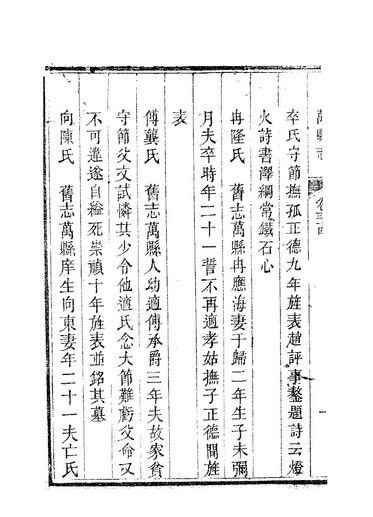 萬縣志
卒氏守節撫孤正德九年旌表趙評事鰲題詩云燈
火詩書澤綱常鐵石心
冉隆氏　舊志萬縣冉應海妻于歸二年生子未彌
月夫卒時年二十一誓不再適孝姑撫子正德間旌
表
傅龔氏　舊志萬縣人幼適傅承爵三年夫故家貧
守節父文試憐其少令他適氏念大節難虧父命又
不可違遂自縊死崇禎十年旌表並銘其墓
向陳氏　舊志萬縣庠生向東妻年二十一夫亡氏